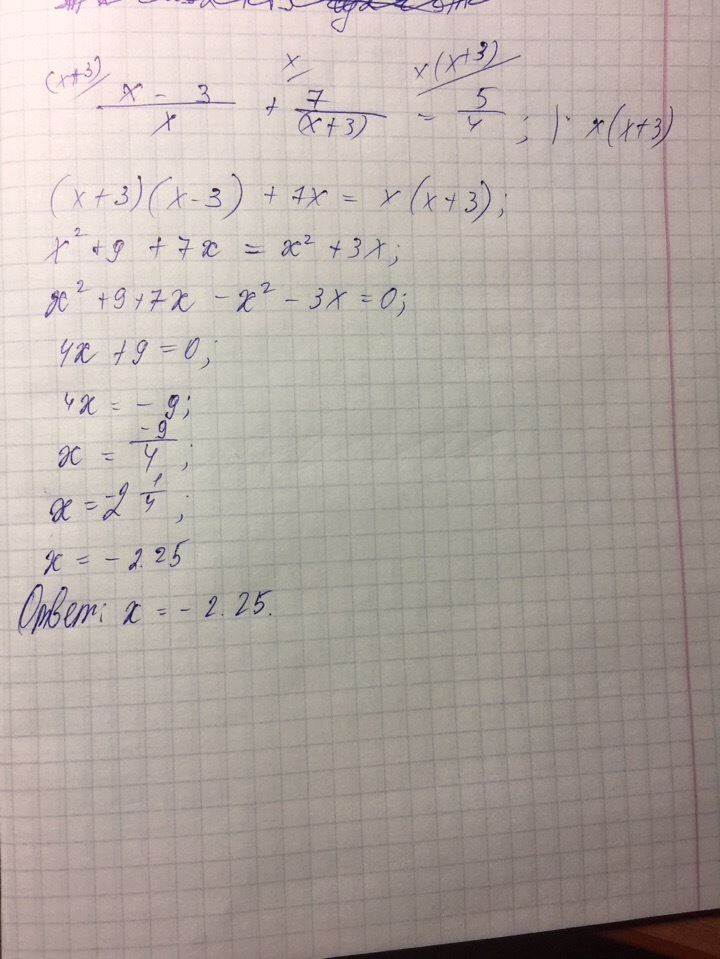 (x+3) x x(x+3)
x - 3 / x + 7 / (x+3) = 5 / 4 ; |· x(x+3)
(x+3)(x-3) + 7x = x(x+3);
x² + 9 + 7x = x² + 3x;
x² + 9 + 7x - x² - 3x = 0;
4x + 9 = 0;
4x = - 9;
x = -9 / 4 ;
x = -2 1/4 ;
x = - 2.25
Ответ: x = - 2.25.